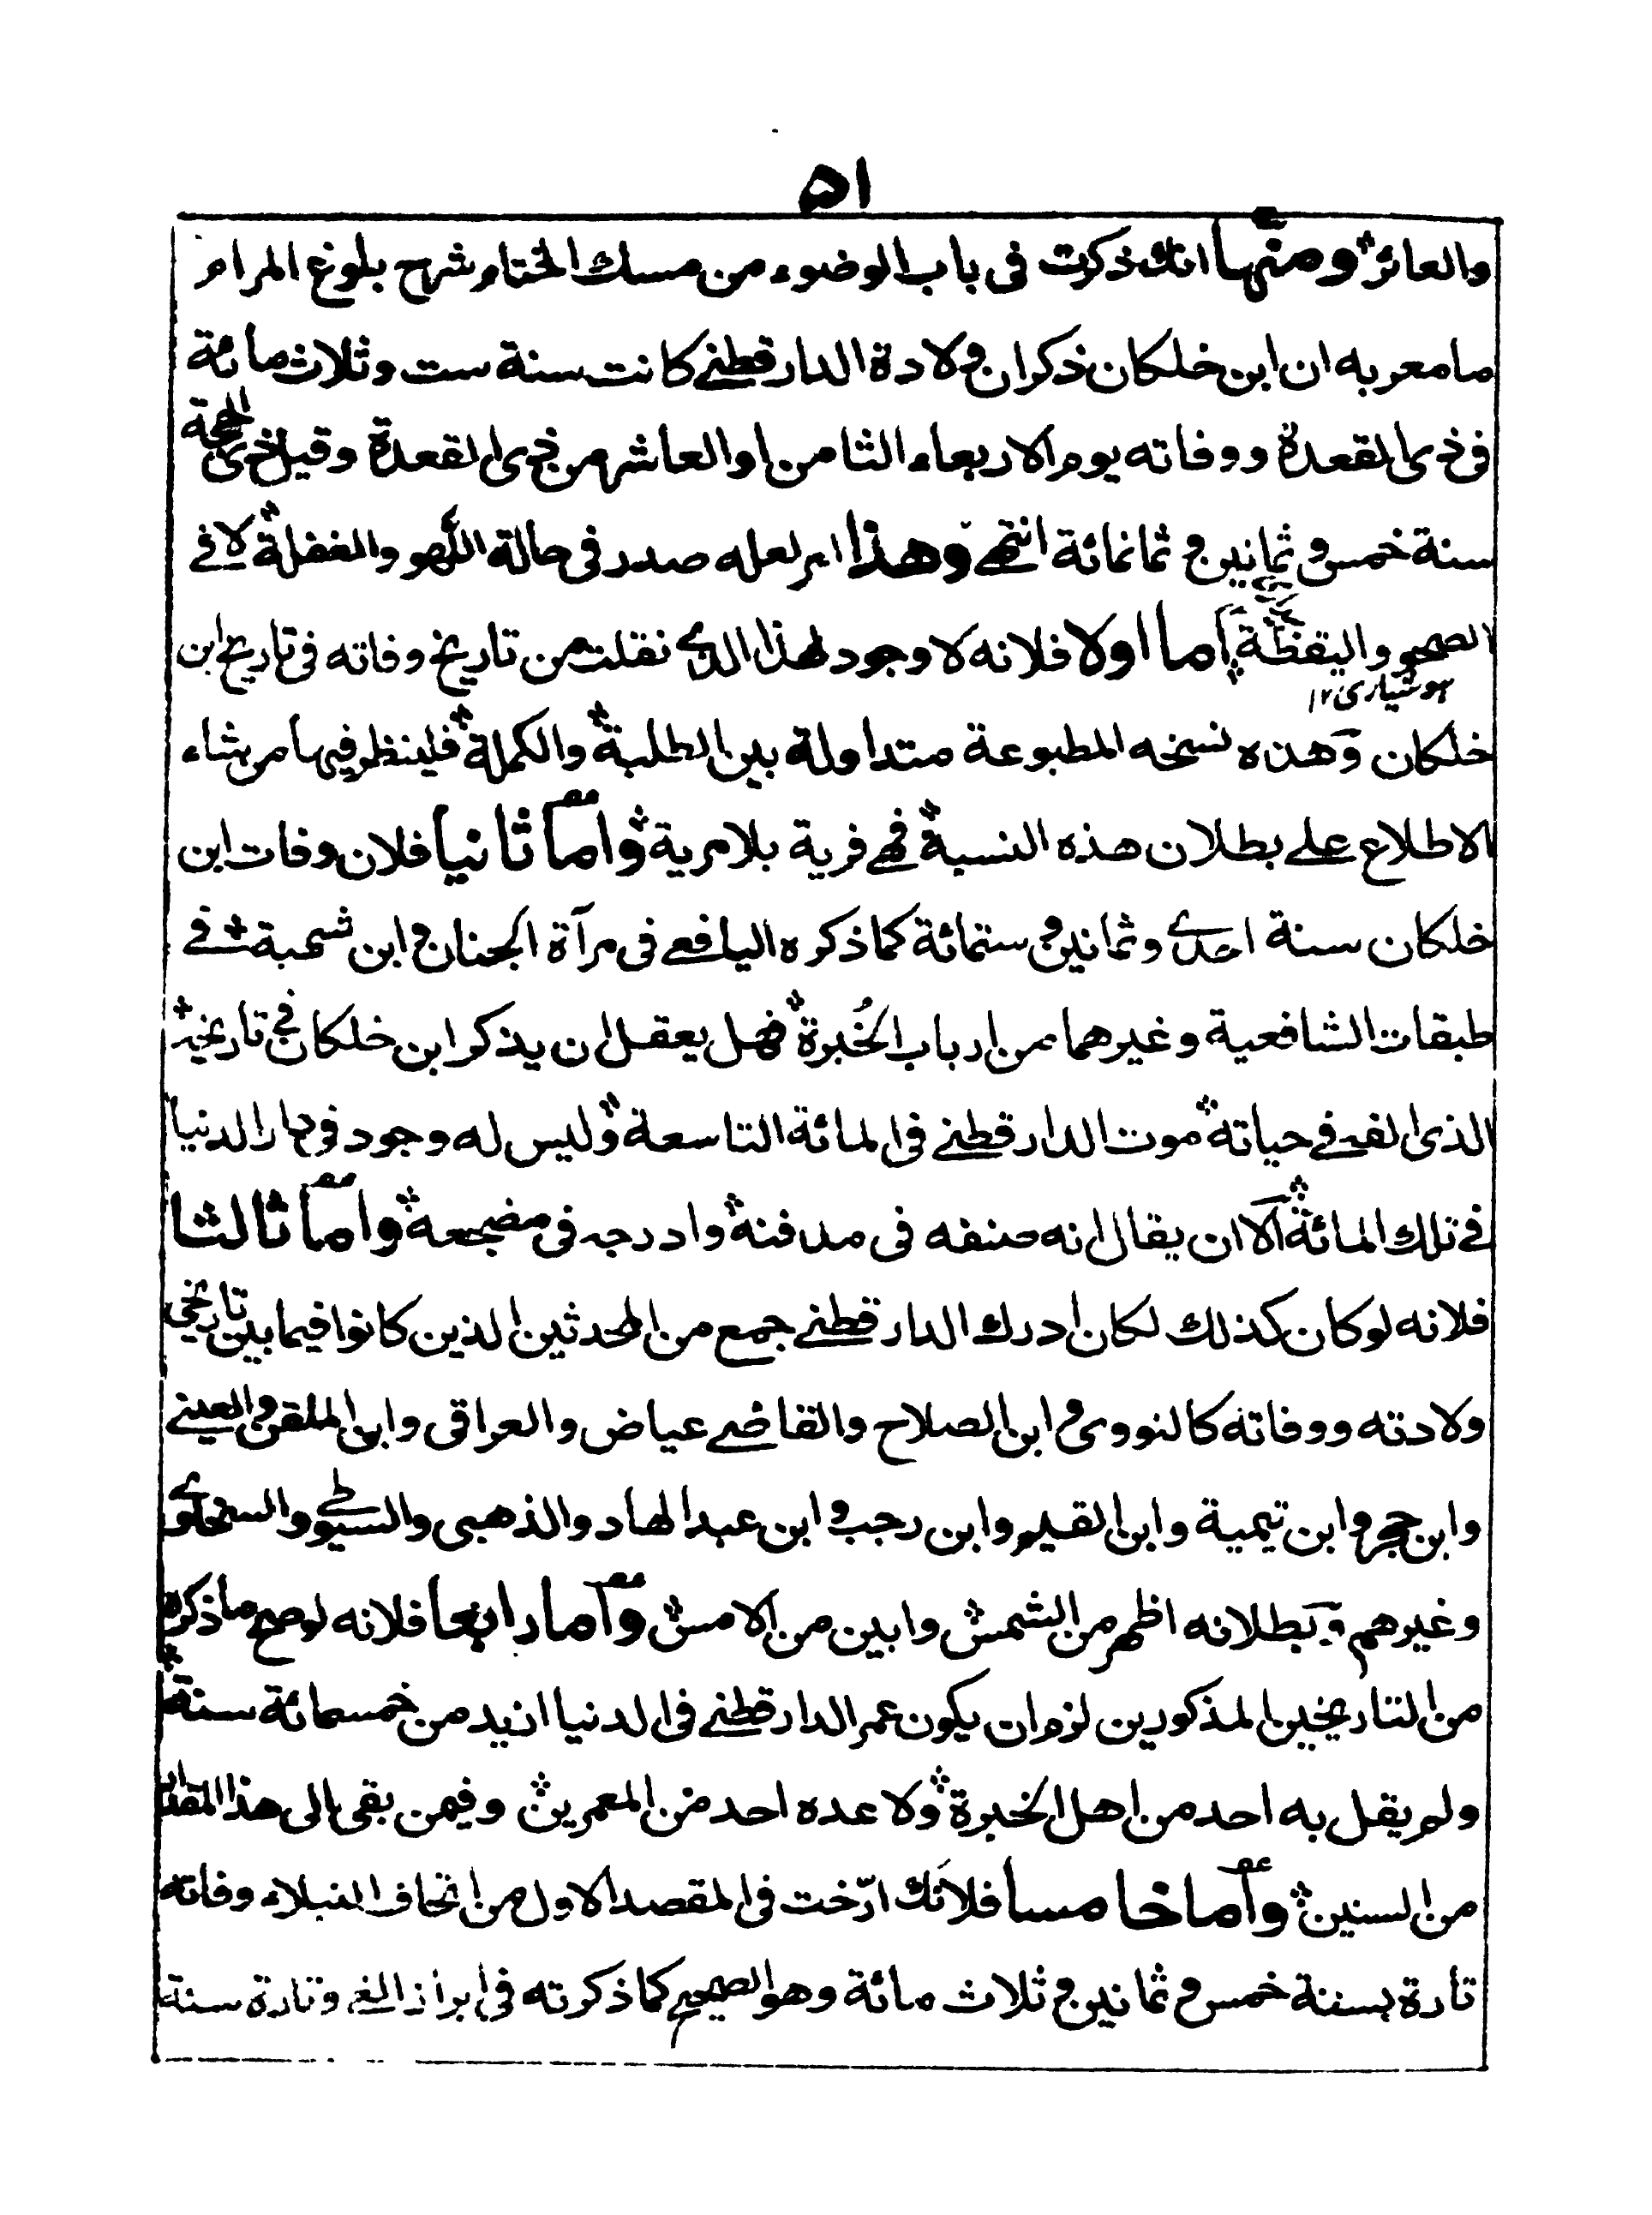 ٥١
والعائر ومنها انك ذكرت فى باب الوضوء من مسك الختام شرح بلوغ المرام
ما معربه ان ابن خلكان ذكر ان ولادة الدارقطنے كانت سنة ست وثلاث مائة
فى ذى القعدة ووفاته يوم الاربعاء الثامن او العاشر من ذى القعدة وقيل ذى الحجة
سنة خمس و ثمانين و ثمانمائة انتهے وهذا امر لعله صدر فى حالة اللهو والغفلة لا فے
الصحو واليقظة اما اولا فلانه لا وجود لهذا الذے نقلت من تاريخ وفاته فى تاريخ ابن
هوشيارى ١٢
خلكان وهذه نسخه المطبوعة متداولة بين الطلبة والكملة فلينظر فيها من شاء
الاطلاع علے بطلان هذه النسبة فهے فرية بلا مرية واما ثانيا فلان وفات ابن
خلكان سنة احدے وثمانين و ستمائة كما ذكره اليافعے فى مرآة الجنان و ابن شهبة فے
طبقات الشافعية وغيرهما من ارباب الخُبرة فهل يعقل ان يذكر ابن خلكان فے تاريخه
الذى الفه فے حياته موت الدارقطنے فى المائة التاسعة وليس له وجود فى دار الدنيا
فے تلك المائة الا ان يقال انه صنفه فى مدفنة وادرجه فى مضجعه واما ثالثا
فلانه لو كان كذلك لكان ادرك الدارقطنے جمع من المحدثين الذين كانوا فيما بين تاريخى
ولادته ووفاته كالنووى و ابن الصلاح والقاضے عياض والعراقى وابن الملقن والعينے
وابن حجر وابن تيمية وابن القيم وابن رجب و ابن عبد الهاد والذهبى والسيوطے والسخاوے
وغيرهم و بطلانه اظهر من الشمش وابين من الامش واما رابعا فلانه لو صح ما ذكره
من التاريخين المذكورين لزم ان يكون عمر الدارقطنے فى الدنيا ازيد من خمسمائة سنة
ولم يقل به احد من اهل الخبرة ولا عده احد من المعمرين وفيمن بقى الى هذا المقدار
من السنين واما خامسا فلانك ارّخت فى المقصد الاول من اتحاف النبلاء وفاته
تارة بسنة خمس و ثمانين و ثلاث مائة وهو الصحيح كما ذكرته فى ابراز الغے وتارة سنة